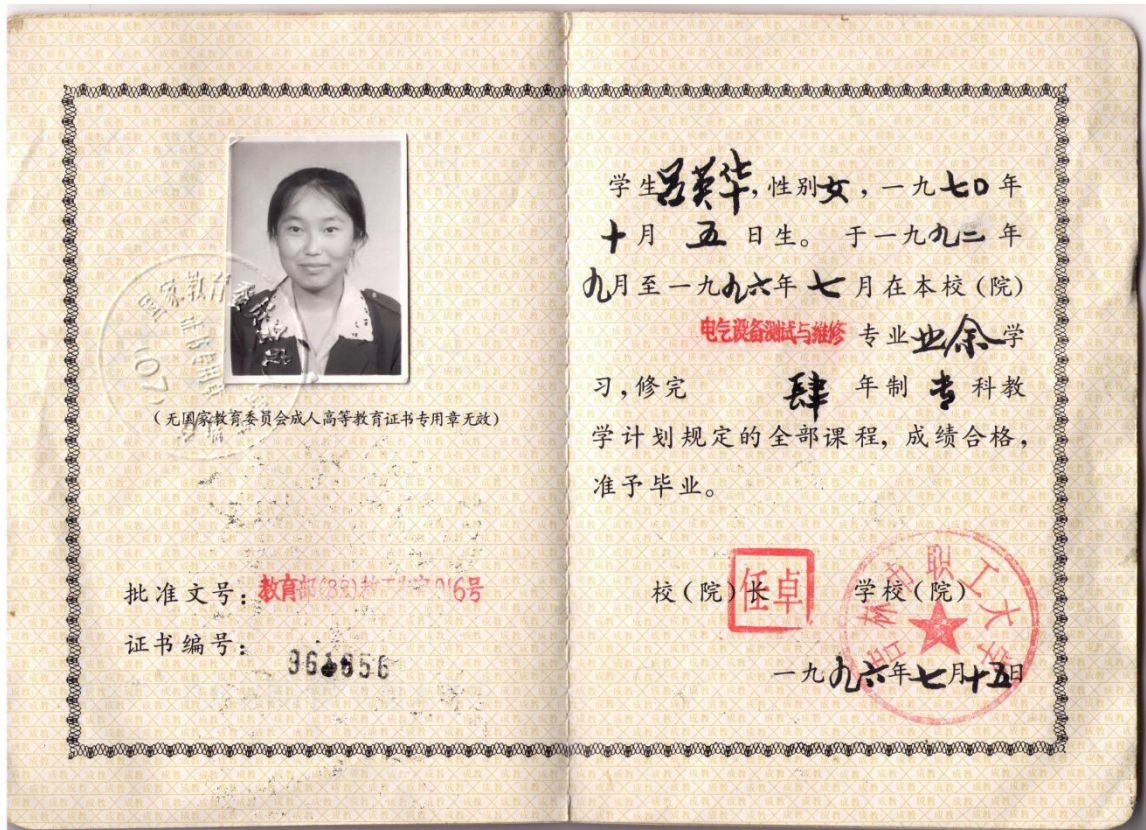 国家教育委员会
证书专用章
(07)
(无国家教育委员会成人高等教育证书专用章无效)
批准文号：教育部(82)教工农字016号
证书编号：
学生吕英华,性别女,一九七0年
十月 五 日生。 于一九九二 年
九月至一九九六年 七 月在本校(院)
电气设备测试与维修 专业业余学
习,修完 肆 年制 专 科教
学计划规定的全部课程, 成绩合格,
准予毕业。
校(院)长 任卓 学校(院)
吉林市职工大学
一九九六年七月十五日